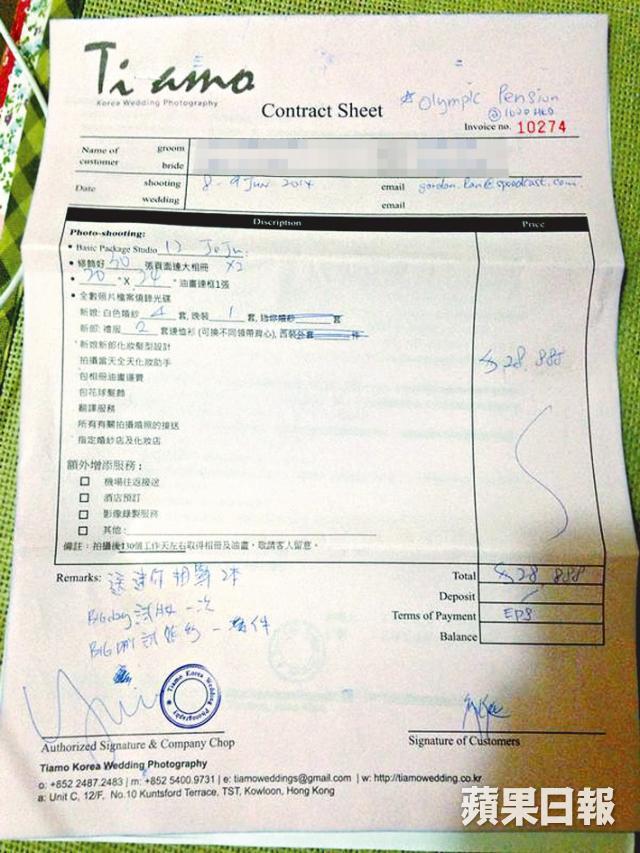 Ti amo
Korea Wedding Photography
Contract Sheet
☆ Olympic Pension
@1020 HKD
Invoice no. 10274
Name of customer
groom
bride
Date
shooting 8-9 Jun 2014 email
wedding email
Discription Price
Photo-shooting:
• Basic Package Studio 12 JeJu
• 修飾好 30 張頁面連大相冊 X2
• 20 " X 24 " 油畫連框1張
• 全數照片檔案燒錄光碟
新娘: 白色婚紗 4 套, 晚裝 1 套, 套
新郎: 禮服 2 套連恤衫 (可換不同領帶背心), 西裝 件
新娘新郎化妝髮型設計
拍攝當天全天化妝助手
包相冊油畫運費
包花球髮飾
翻譯服務
所有有關拍攝婚照的接送
指定婚紗店及化妝店
28,888
額外增添服務:
□ 機場往返接送
□ 酒店預訂
□ 影像錄製服務
□ 其他:
備註: 拍攝後130個工作天左右取得相冊及油畫, 敬請客人留意。
Remarks: 送 2本
Bigday 試妝一次
Total 28,888
Deposit
Terms of Payment EPS
Balance
Tiamo Korea Wedding Photography
Authorized Signature & Company Chop
Signature of Customers
Tiamo Korea Wedding Photography
o: +852 2487.2483 | m: +852 5400.9731 | e: tiamoweddings@gmail.com | w: http://tiamowedding.co.kr
a: Unit C, 12/F, No.10 Kuntsford Terrace, TST, Kowloon, Hong Kong
蘋果日報